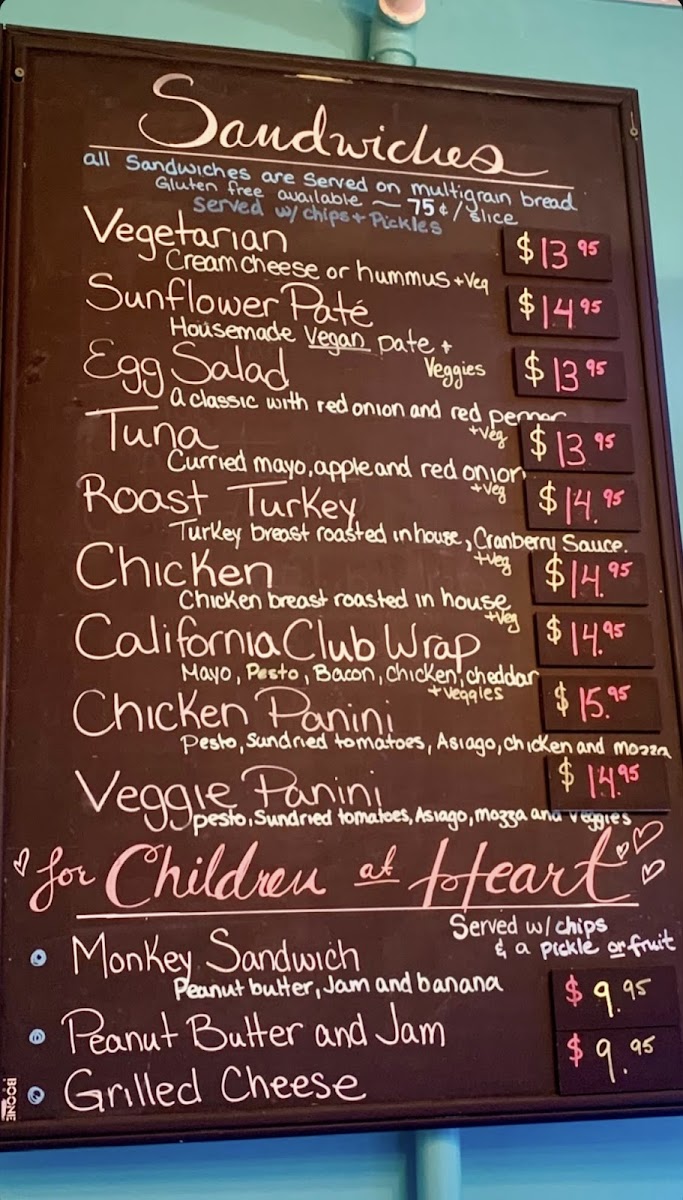 Sandwiches
all Sandwiches are Served on multigrain bread
Gluten free available ~ 75¢/slice
Served w/ chips + Pickles
Vegetarian $13.95
Cream cheese or hummus + Veg
Sunflower Paté $14.95
Housemade Vegan pate +
Veggies
Egg Salad $13.95
A classic with red onion and red pepper
+ Veg
Tuna $13.95
Curried mayo, apple and red onion
+ Veg
Roast Turkey $14.95
Turkey breast roasted in house, Cranberry Sauce.
+ Veg
Chicken $14.95
Chicken breast roasted in house
+ Veg
California Club Wrap $14.95
Mayo, Pesto, Bacon, Chicken, cheddar
+ veggies
Chicken Panini $15.95
Pesto, Sundried tomatoes, Asiago, chicken and mozza
Veggie Panini $14.95
pesto, Sundried tomatoes, Asiago, mozza and veggies
for Children at Heart
Served w/ chips
& a pickle or fruit
Monkey Sandwich $9.95
Peanut butter, Jam and banana
Peanut Butter and Jam $9.95
Grilled Cheese
BOONE